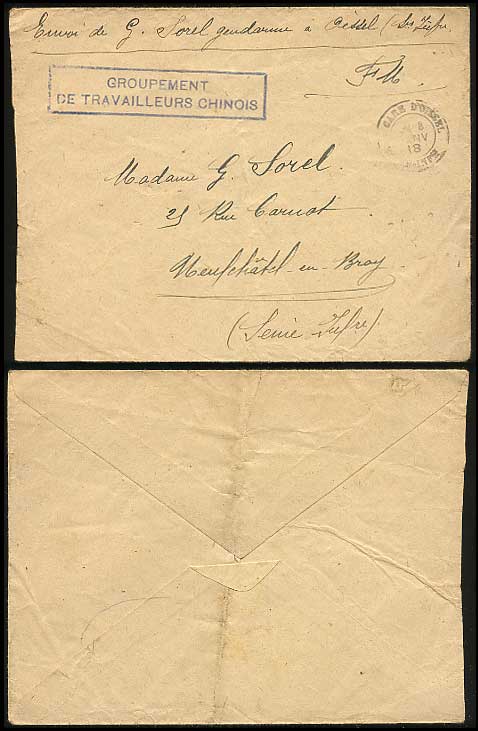 Envoi de G. Sorel gendarme à Oissel (Sne Infre
F M.
GROUPEMENT
DE TRAVAILLEURS CHINOIS
GARE D'OISSEL
8
18
Madame G. Sorel.
25 Rue Carnot
Neufchâtel-en-Bray
(Seine Infre)